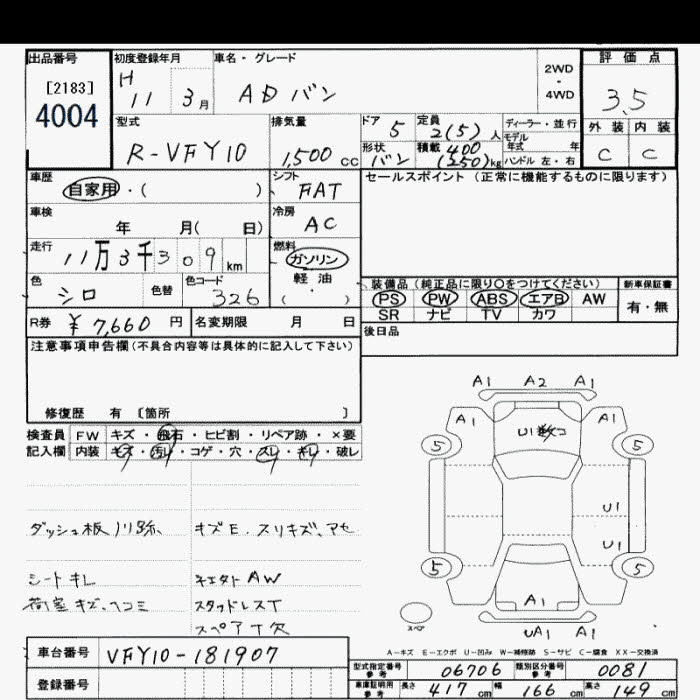 出品番号
[2183]
4004
初度登録年月
H 11 3月
車名・グレード
ADバン
2WD
・
4WD
評価点
3.5
型式
R-VFY10
排気量
1,500 CC
ドア 5
定員 2(5) 人
形状 バン
積載 400 (250) kg
ディーラー・並行
モデル
年式 年
ハンドル 左・右
外装 内装
C C
車歴
自家用・( )
シフト
FAT
セールスポイント (正常に機能するものに限ります)
車検
年 月( 日)
冷房
AC
走行
11万3千309km
燃料
ガソリン
軽油
( ・ )
色
シロ
色替
色コード
326
装備品 (純正品に限り○をつけてください)
新車保証書
PS PW ABS エアB AW
有・無
SR ナビ TV カワ
R券 ¥7,660円
名変期限 月 日
後日品
注意事項申告欄(不具合内容等は具体的に記入して下さい)
修復歴 有 [箇所 ]
検査員
記入欄
FW キズ・飛石・ヒビ割・リペア跡・×要
内装 キズ・汚レ・コゲ・穴・スレ・キレ・破レ
ダッシュ板
キズE.スリキズ、アセ
シートキレ
AW
荷室キズ、ヘコミ
スタッドレスT
スペアT欠
A1 A2 A1
A1 A1
U1
5 5
U1
U1
5 5
A1
UA1 A1
スペア
A-キズ E-エクボ U-凹み W-補修跡 S-サビ C-腐食 XX-交換済
車台番号
VFY10-181907
登録番号
型式指定番号
参考
06706
類別区分番号
参考
0081
車庫証明用
参考
長さ 417cm 幅 166cm 高さ 149cm